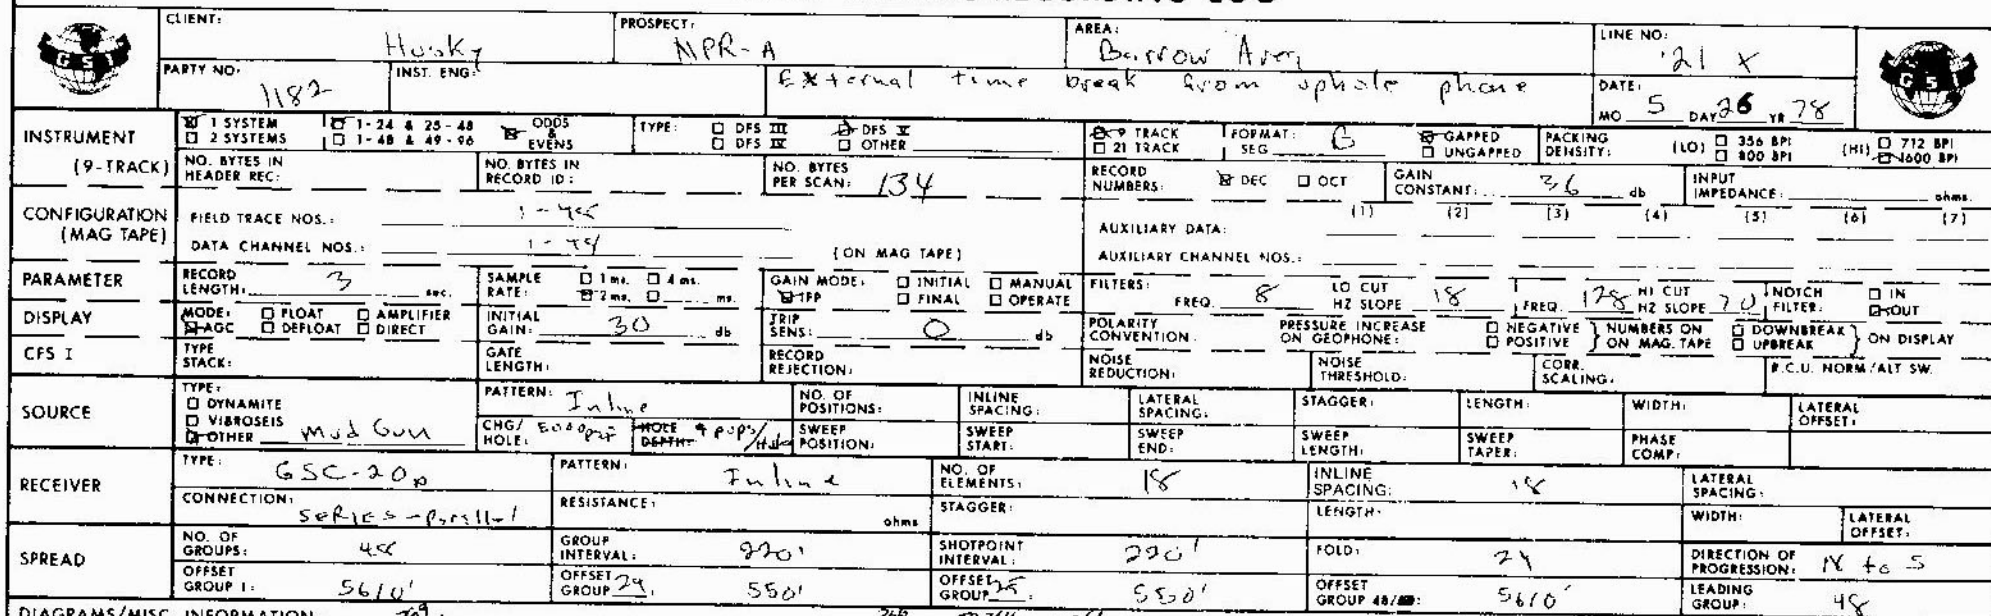 CLIENT: Husky PROSPECT: NPR-A AREA: Barrow Area LINE NO: 21 X
GSI
PARTY NO: 1182 INST. ENG: External time break from uphole phone DATE: MO 5 DAY 26 YR 78
GSI
INSTRUMENT (9-TRACK) 1 SYSTEM 1-24 & 25-48 ODDS & EVENS TYPE: DFS III DFS V 9 TRACK FORMAT: C GAPPED PACKING DENSITY: (LO) 356 BPI (HI) 712 BPI
2 SYSTEMS 1-48 & 49-96 DFS IV OTHER 21 TRACK SEG UNGAPPED 800 BPI 1600 BPI
NO. BYTES IN HEADER REC: NO. BYTES IN RECORD ID: NO. BYTES PER SCAN: 134 RECORD NUMBERS: DEC OCT GAIN CONSTANT: 36 db INPUT IMPEDANCE: ohms.
CONFIGURATION (MAG TAPE) FIELD TRACE NOS.: 1-48 AUXILIARY DATA: (1) (2) (3) (4) (5) (6) (7)
DATA CHANNEL NOS.: 1-48 (ON MAG TAPE) AUXILIARY CHANNEL NOS.:
PARAMETER RECORD LENGTH: 3 sec. SAMPLE RATE: 1 ms. 4 ms. 2 ms. ms. GAIN MODE: INITIAL MANUAL IFP FINAL OPERATE FILTERS: FREQ. 8 LO CUT HZ SLOPE 18 FREQ. 128 HI CUT HZ SLOPE 70 NOTCH FILTER: IN OUT
DISPLAY MODE: FLOAT AMPLIFIER AGC DEFLOAT DIRECT INITIAL GAIN: 30 db TRIP SENS: 0 db POLARITY CONVENTION: PRESSURE INCREASE ON GEOPHONE: NEGATIVE POSITIVE } NUMBERS ON ON MAG. TAPE DOWNBREAK UPBREAK } ON DISPLAY
CFS I TYPE STACK: GATE LENGTH: RECORD REJECTION: NOISE REDUCTION: NOISE THRESHOLD: CORR. SCALING: R.C.U. NORM/ALT SW.
SOURCE TYPE: DYNAMITE VIBROSEIS OTHER Mud Gun PATTERN: Inline NO. OF POSITIONS: INLINE SPACING: LATERAL SPACING: STAGGER: LENGTH: WIDTH: LATERAL OFFSET:
CHG/HOLE: HOLE DEPTH: 4 pops/Hole SWEEP POSITION: SWEEP START: SWEEP END: SWEEP LENGTH: SWEEP TAPER: PHASE COMP:
RECEIVER TYPE: GSC-20D PATTERN: Inline NO. OF ELEMENTS: 18 INLINE SPACING: 18 LATERAL SPACING:
CONNECTION: SERIES-Parallel RESISTANCE: ohms STAGGER: LENGTH: WIDTH: LATERAL OFFSET:
SPREAD NO. OF GROUPS: 48 GROUP INTERVAL: 220' SHOTPOINT INTERVAL: 220' FOLD: 24 DIRECTION OF PROGRESSION: N to S
OFFSET GROUP 1: 5610' OFFSET GROUP 24: 550' OFFSET GROUP 25: 550' OFFSET GROUP 48/96: 5610' LEADING GROUP: 48
DIAGRAMS/MISC. INFORMATION